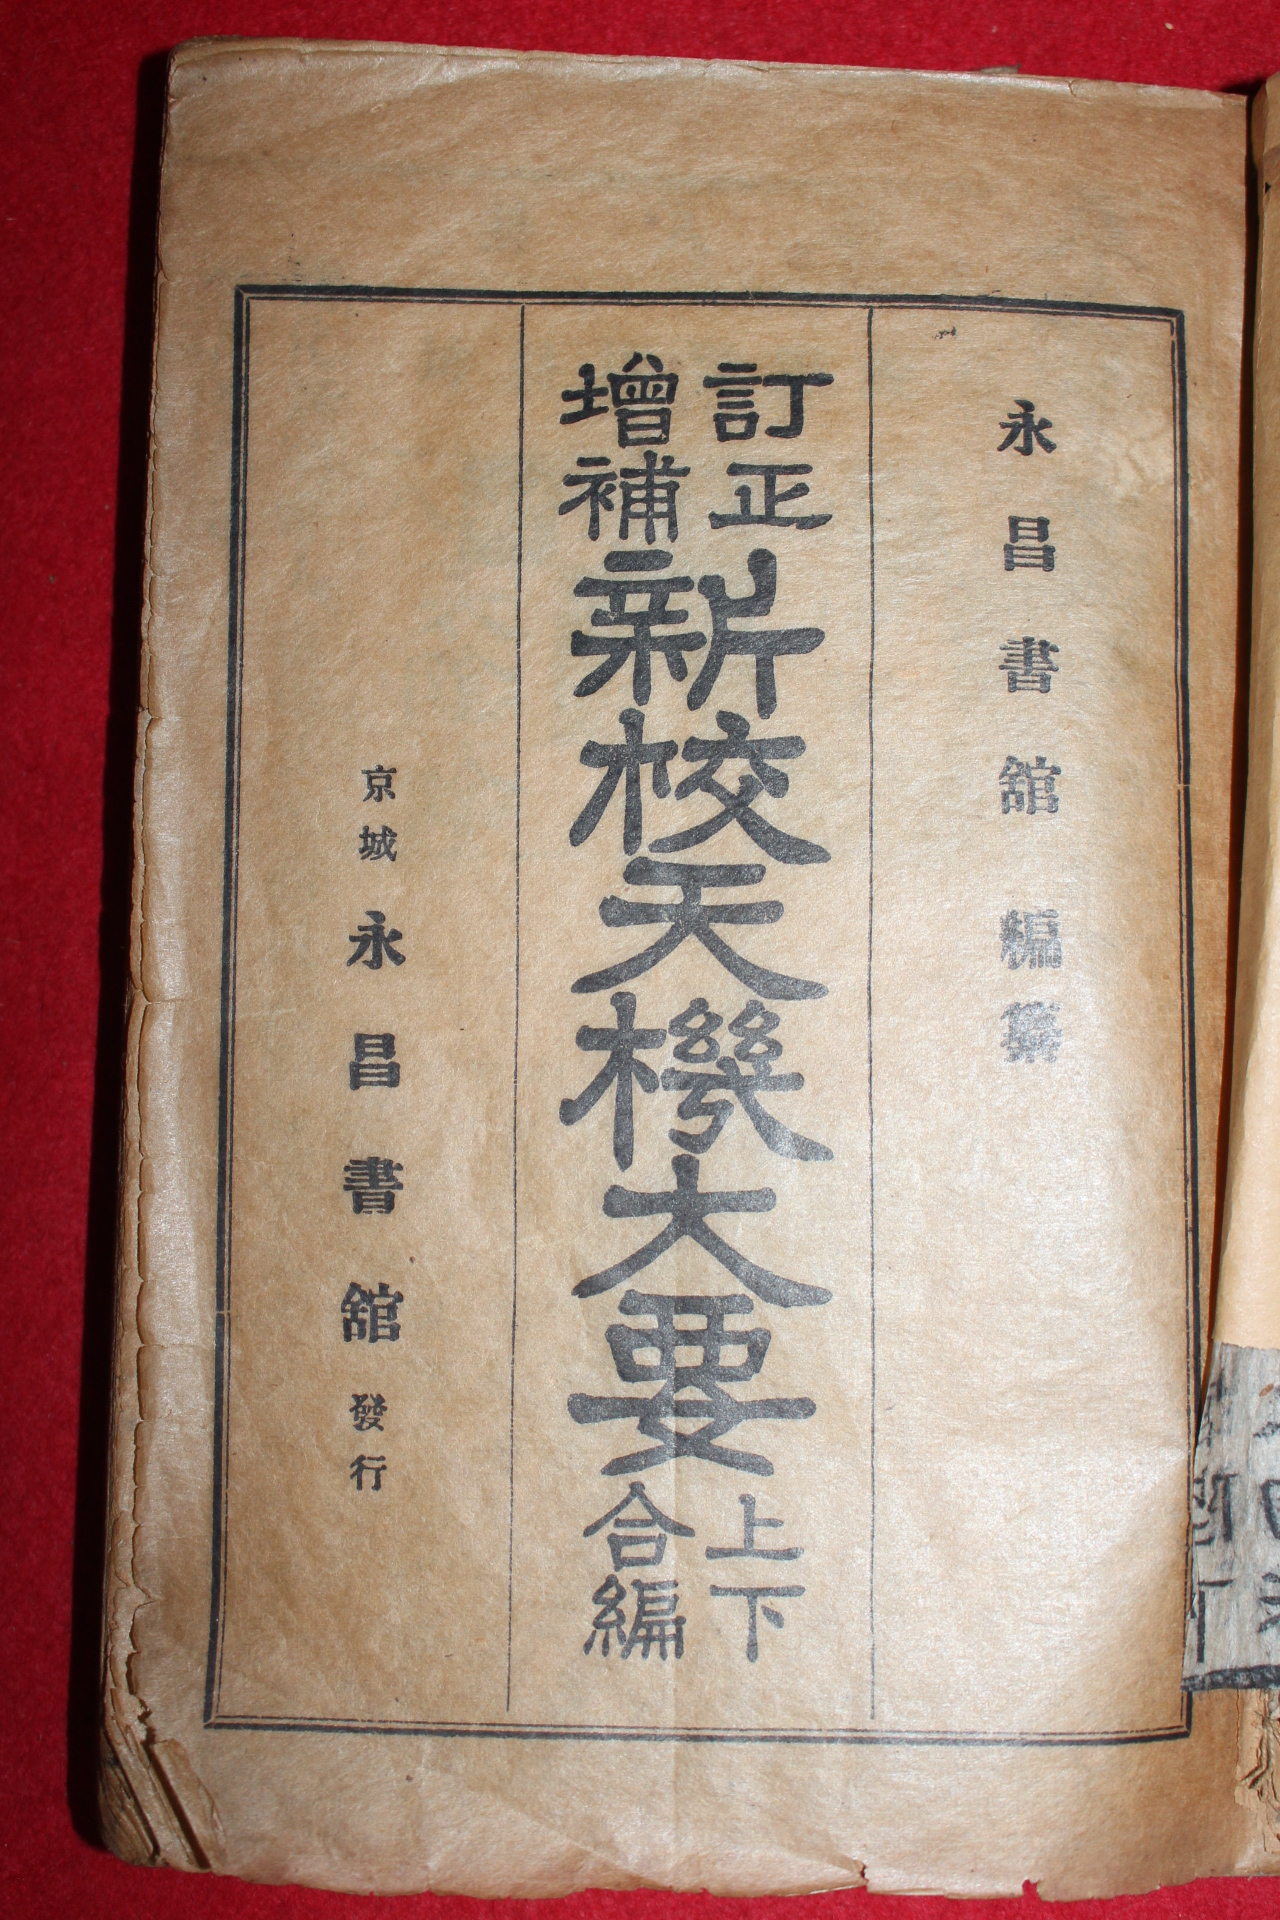 永昌書舘編纂
訂正
增補
新校天機大要
上下
合編
京城永昌書舘發行